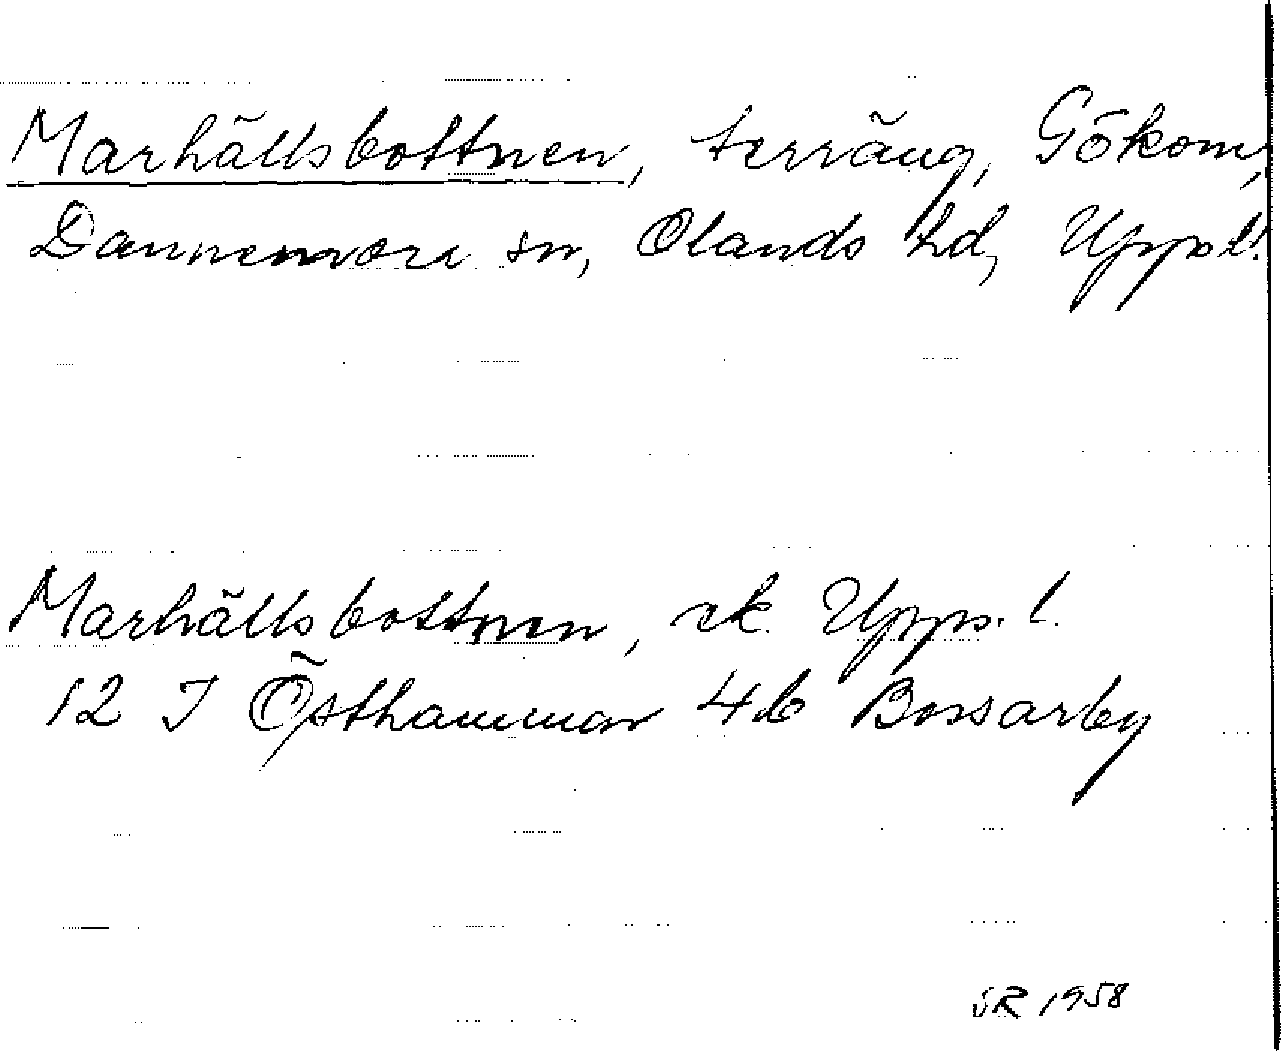 Marhällsbottnen, terräng, Gökom,
Dannemora sn, Olands hd, Uppl.
Marhällsbottnen, ek. Upps. l.
12 I Östhammar 4b Bossarby
SR 1958